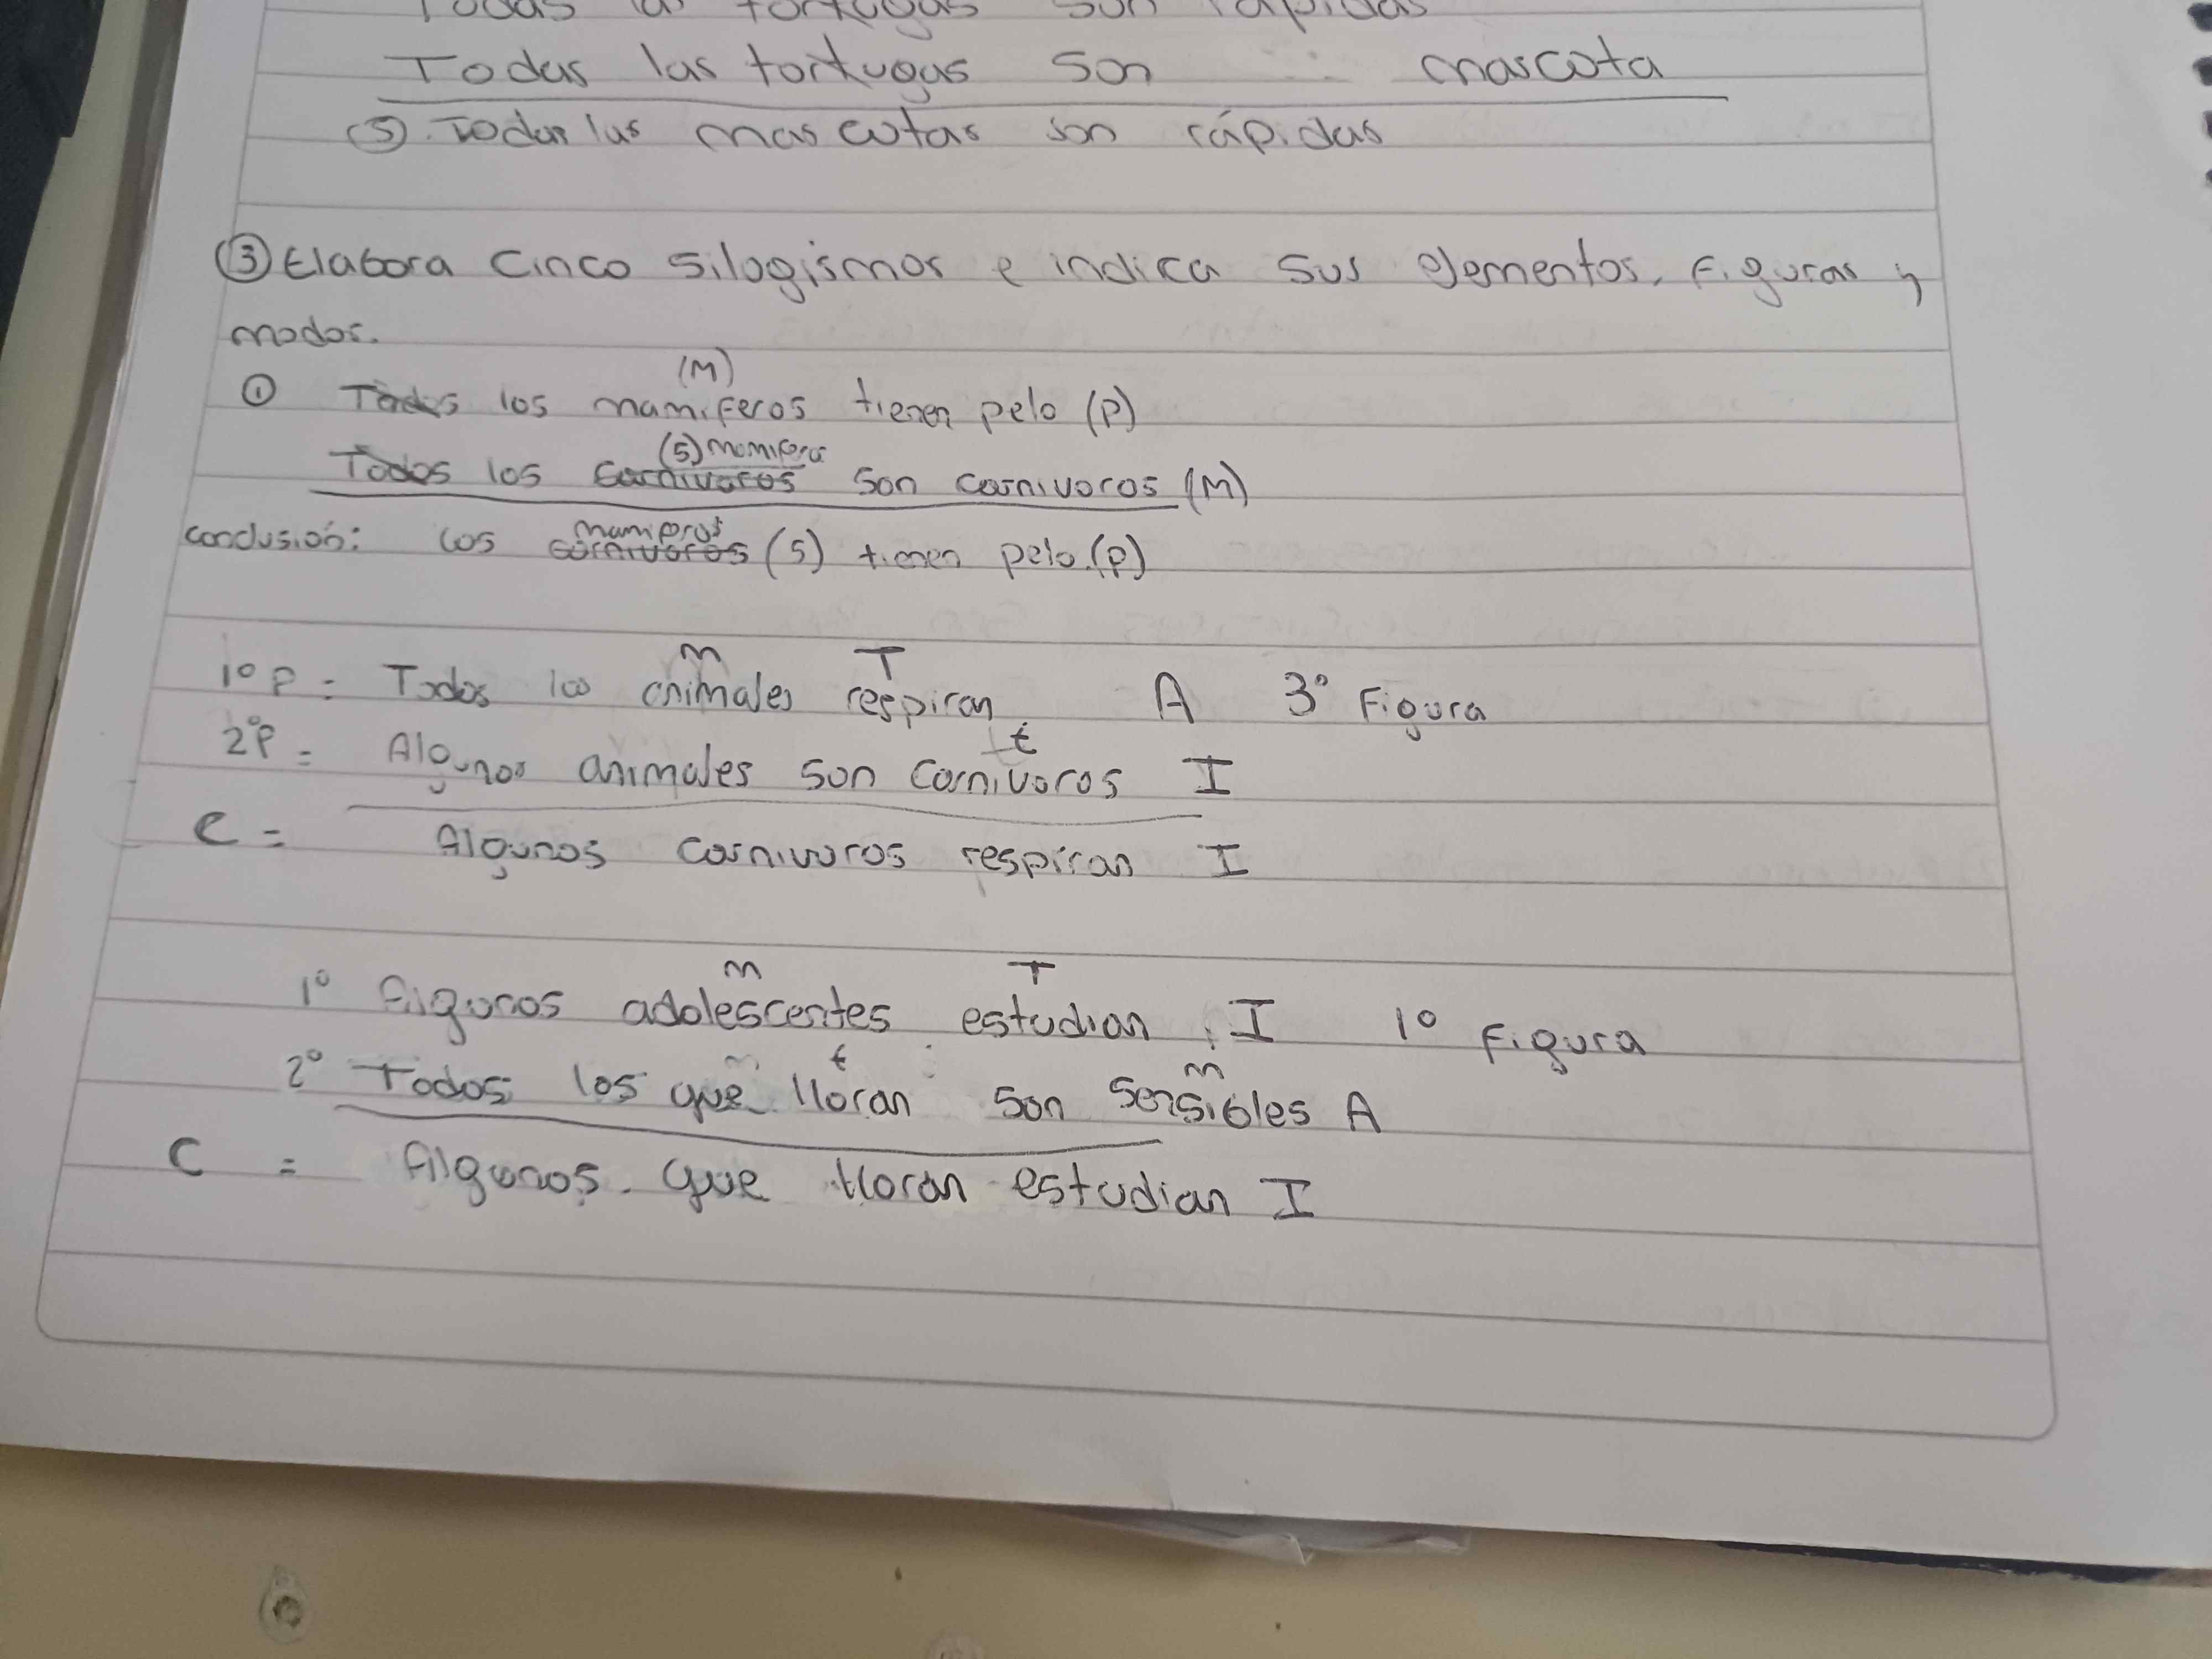 Todas las tortugas son rápidas
Todas las tortugas son mascota
(5). Todas las mascotas son rápidas
③ Elabora cinco silogismos e indica sus elementos, figuras y
modos.
(M)
① Todos los mamiferos tienen pelo (P)
(S) mamiferos
Todos los carnivoros son carnivoros (M)
mamiferos
conclusión: los carnivoros (S) tienen pelo. (P)
m T
1º P = Todos los animales respiran A 3º Figura
t
2ºP = Algunos animales son carnivoros I
C = Algunos carnivoros respiran I
m T
1º Algunos adolescentes estudian I 1º Figura
t m
2º Todos los que lloran son sensibles A
C = Algunos que lloran estudian I